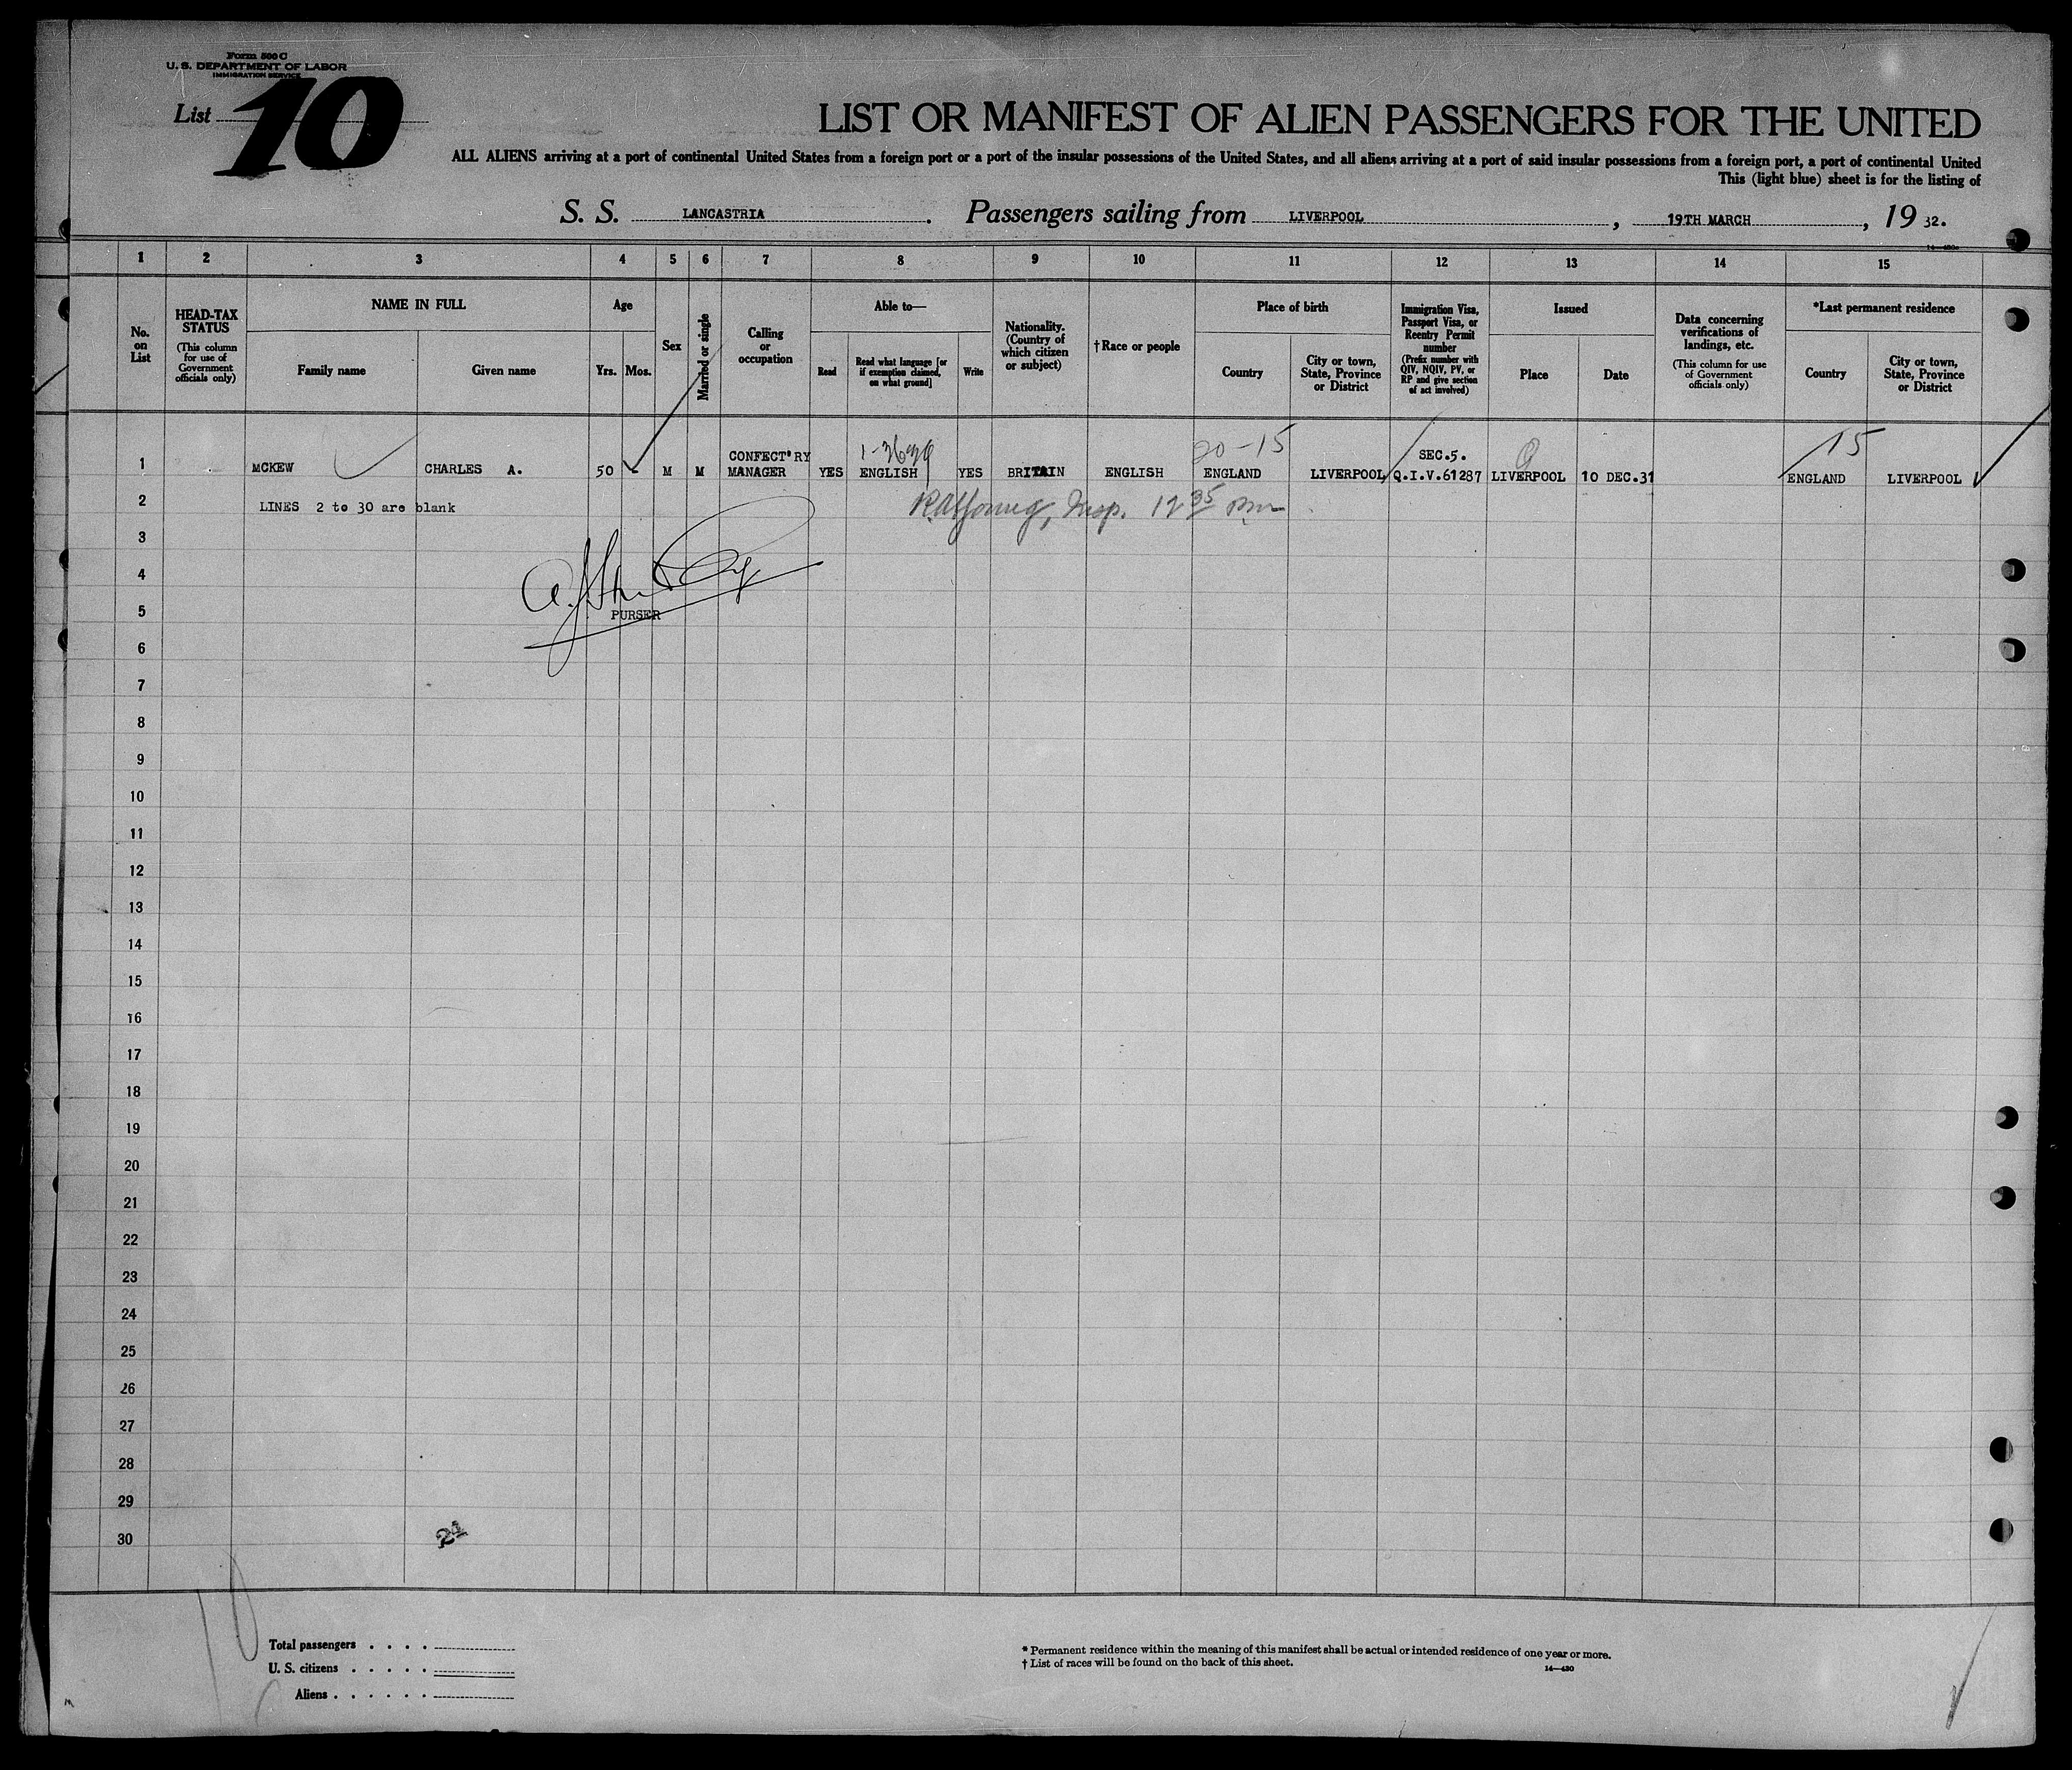 Form 500 C
U. S. DEPARTMENT OF LABOR
IMMIGRATION SERVICE
List 10
LIST OR MANIFEST OF ALIEN PASSENGERS FOR THE UNITED
ALL ALIENS arriving at a port of continental United States from a foreign port or a port of the insular possessions of the United States, and all aliens arriving at a port of said insular possessions from a foreign port, a port of continental United
This (light blue) sheet is for the listing of
S. S. LANCASTRIA. Passengers sailing from LIVERPOOL, 19TH MARCH, 19 32.
14—430
1 2 3 4 5 6 7 8 9 10 11 12 13 14 15
No. on List
HEAD-TAX STATUS
(This column for use of Government officials only)
NAME IN FULL
Family name Given name
Age
Yrs. Mos.
Sex
Married or single
Calling or occupation
Able to—
Read Read what language [or if exemption claimed, on what ground] Write
Nationality. (Country of which citizen or subject)
†Race or people
Place of birth
Country City or town, State, Province or District
Immigration Visa, Passport Visa, or Reentry Permit number
(Prefix number with QIV, NQIV, PV, or RP and give section of act involved)
Issued
Place Date
Data concerning verifications of landings, etc.
(This column for use of Government officials only)
*Last permanent residence
Country City or town, State, Province or District
20-15 15
CONFECT'RY SEC.5.
1 MCKEW CHARLES A. 50 - M M MANAGER YES ENGLISH YES BRITAIN ENGLISH ENGLAND LIVERPOOL Q.I.V.61287 LIVERPOOL 10 DEC.31 ENGLAND LIVERPOOL
2 LINES 2 to 30 are blank Insp. 12 35 pm
3
4
5 PURSER
6
7
8
9
10
11
12
13
14
15
16
17
18
19
20
21
22
23
24
25
26
27
28
29
30 21
10
Total passengers . . . .
U. S. citizens . . . . .
Aliens . . . . . .
* Permanent residence within the meaning of this manifest shall be actual or intended residence of one year or more.
† List of races will be found on the back of this sheet.
14—430